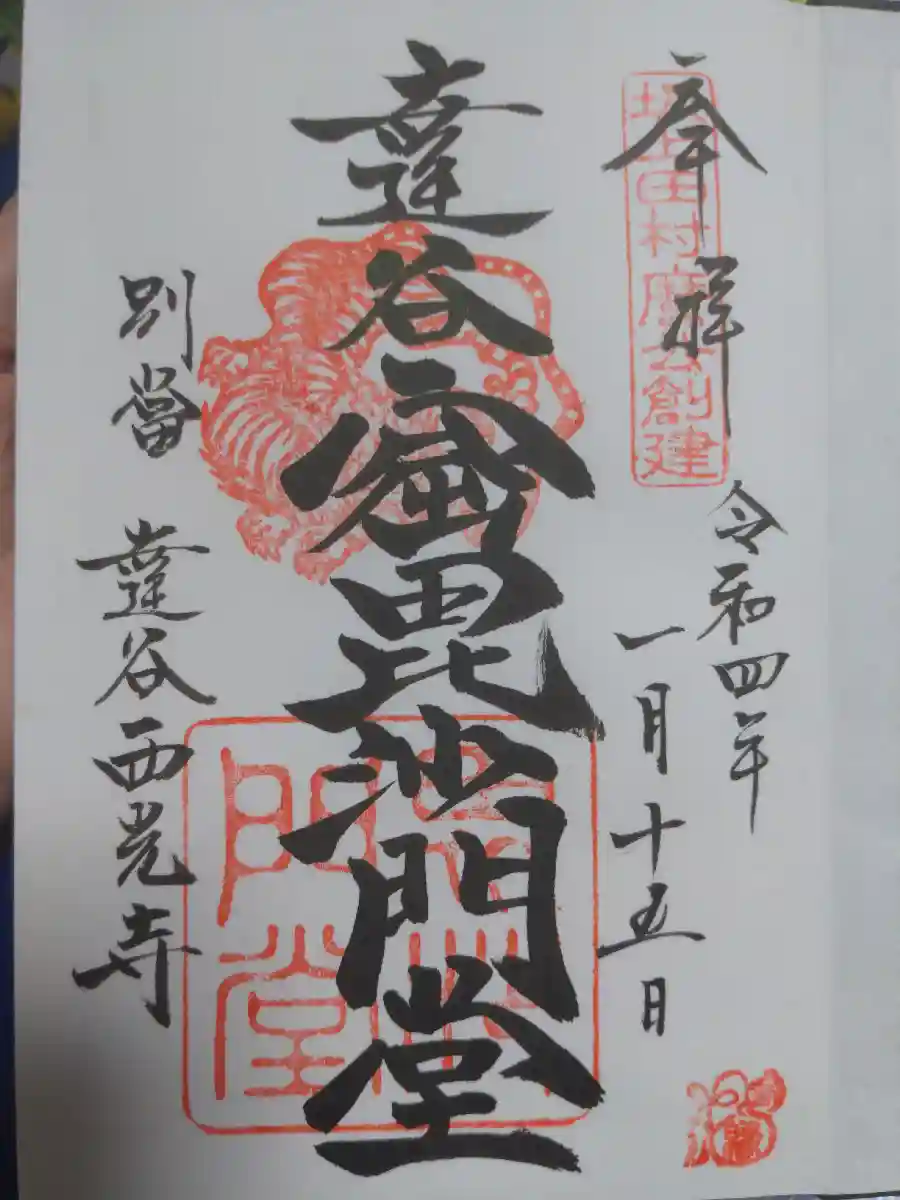 奉拝
坂上田村麿公創建
令和四年
一月十五日
達谷窟毘沙門堂
門堂
別當 達谷西光寺